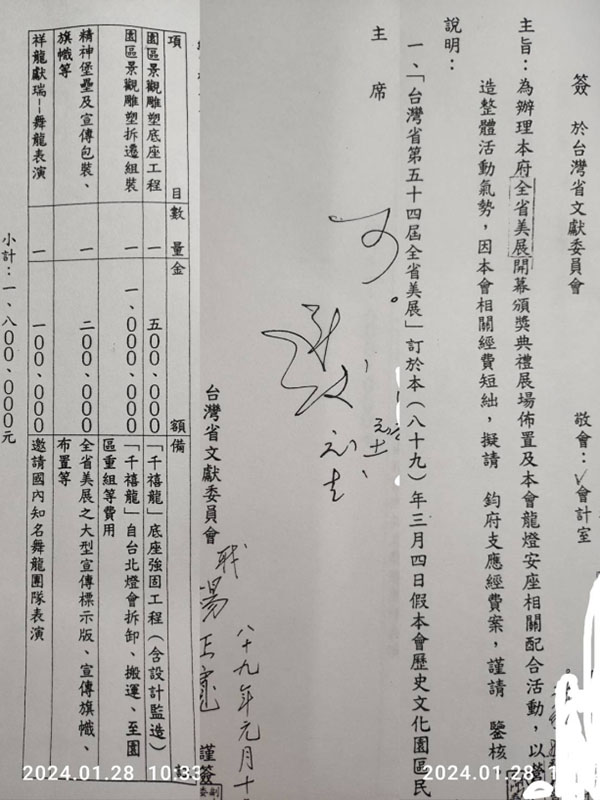 簽　於台灣省文獻委員會
敬會：會計室
主旨：為辦理本府全省美展開幕頒獎典禮展場佈置及本會龍燈安座相關配合活動，以營
造整體活動氣勢，因本會相關經費短絀，擬請　鈞府支應經費案，謹請　鑒核
說明：
一、「台灣省第五十四屆全省美展」訂於本（八十九）年三月四日假本會歷史文化園區民
主席
可。
台灣省文獻委員會
謹簽
八十九年元月十
項目　數量　金額　備
園區景觀雕塑底座工程　一　五００、０００　「千禧龍」底座強固工程（含設計監造）
園區景觀雕塑拆遷組裝　一　一、０００、０００　「千禧龍」自台北燈會拆卸、搬運、至園
區重組等費用
精神堡壘及宣傳包裝、　一　二００、０００　全省美展之大型宣傳標示版、宣傳旗幟、
旗幟等　布置等
祥龍獻瑞–舞龍表演　一　一００、０００　邀請國內知名舞龍團隊表演
小計：一、八００、０００元
2024.01.28 10:33
2024.01.28